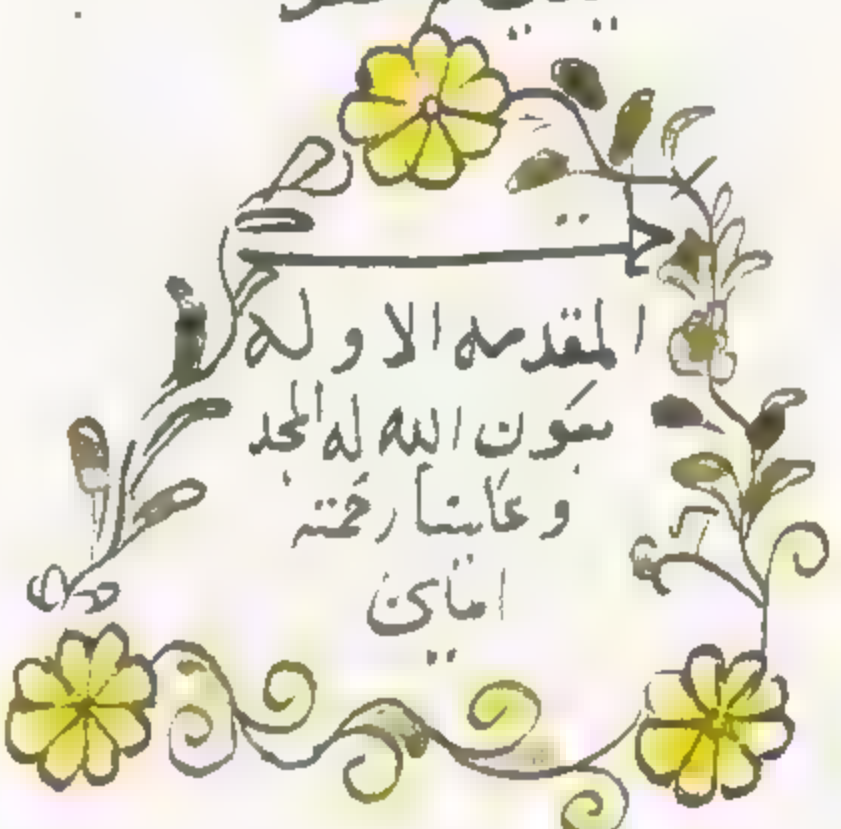 المقدمه الاوله
بعون الله له المجد
وعلينا رحمته
امين